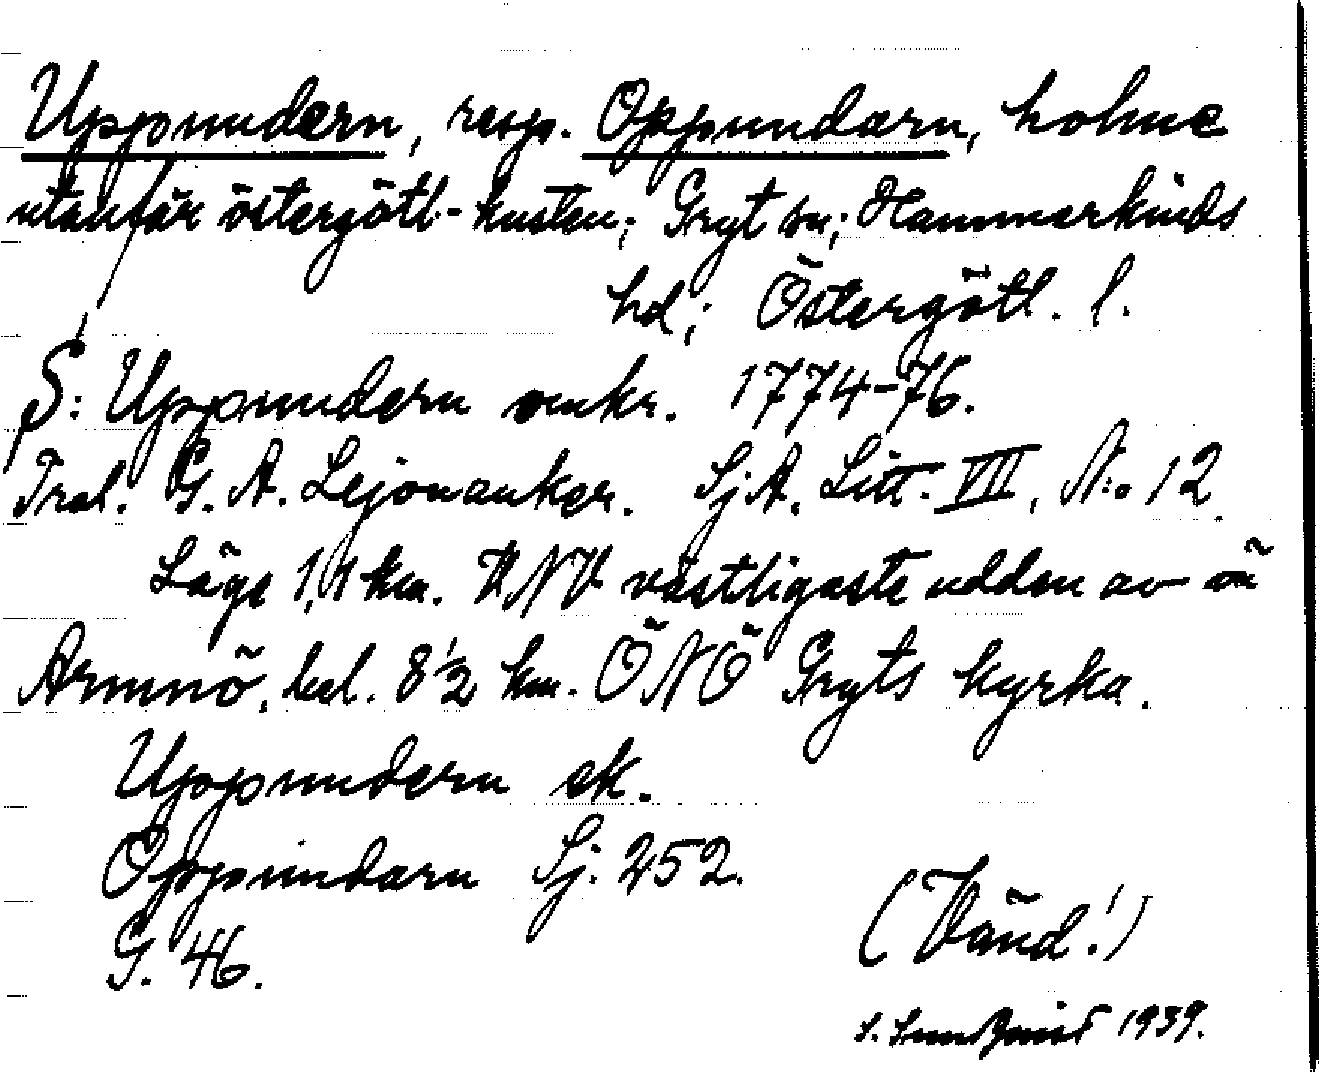 Uppundern, resp. Oppundarn, holme
utanför östergötl-kusten; Gryt sn; Hammarkinds
hd; Östergötl. l.
S: Uppundern omkr. 1774-76.
G. A. Lejonanker. SjA. Litt. VII, N:o 12.
Läge 1,4 km. VNV västligaste udden av ön
Armnö, bel. 8½ km. ÖNÖ Gryts kyrka.
Uppundern ek.
Oppundarn Sj. 252.
G. 46.
(Vänd!)
S. 1939.